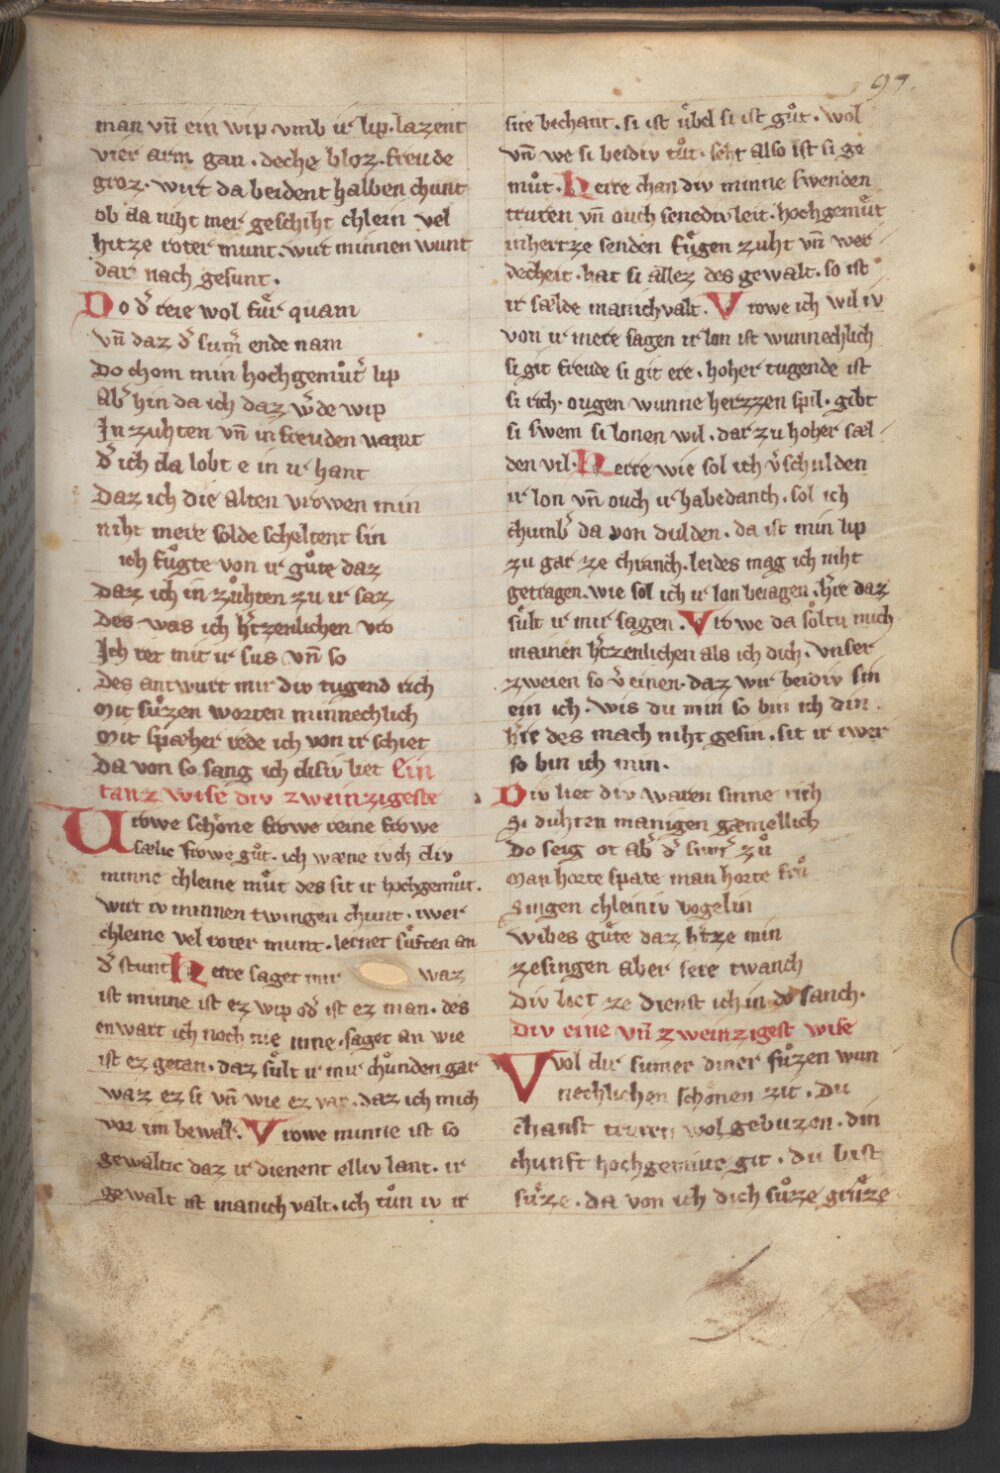 97.
man vn̄ ein wip. vmb ir lip. lazent
vier arm gan. deche bloz. freude
groz. wirt da beident halben chunt
ob da niht mer geschiht chlein vel
hitze roter munt. wirt minnen wunt
dar nach gesunt.
Do d͛ reie wol fuͤr quam
vn̄ daz d͛ sum͛ ende nam
Do chom min hochgemuͦt͛ lip
Ab͛ hin da ich daz w͛de wip
In zuhten vn̄ in freuden vant
d͛ ich da lobt e in ir hant
Daz ich die alten vrowen min
niht mere solde scheltent sin
ich fuͦgte von ir guͤte daz
Daz ich in zuͤhten zu ir saz
Des was ich h͛tzenlichen vro
Ich ret mit ir sus vn̄ so
Des antwurt mir div tugend rich
Mit suͤzen worten minnechlich
Mit spæher rede ich von ir schiet
Da von so sang ich disiv liet Ein
tanz wise div zweinzigeste
Vrowe schone frowe reine frowe
sælic frowe guͦt. ich wæne ivch div
minne chleine muͤt des sit ir hochgemuͦt.
wirt iv minnen twingen chunt. iwer
chleine vel roter munt. lernet suͤften an
d͛ stunt Herre saget mir waz
ist minne ist ez wip od͛ ist ez man. des
enwart ich noch nie inne. saget an wie
ist ez getan. daz suͤlt ir mir chuͤnden gar
waz ez si vn̄ wie ez var. daz ich mich
vor im bewar. Vrowe minne ist so
gewaltic daz ir dienent elliv lant. ir
gewalt ist manich valt. ich tuͦn iv ir
site bechant. si ist uͤbel si ist guͦt. wol
vn̄ we si beidiv tuͦt. seht also ist si ge
muͦt. Herre chan div minne swenden
truren vn̄ ouch senediv leit. hochgemuͤt
in hertze senden fuͤgen zuht vn̄ wer
decheit. hat si allez des gewalt. so ist
ir sælde manichvalt. Vrowe ich wil iv
von ir mere sagen ir lon ist wunnechlich
si git freude si git ere. hoher tugende ist
si rich. ougen wunne hertzzen spil. gibt
si swem si lonen wil. dar zu hoher sæl
den vil. Herre wie sol ich v͛schulden
ir lon vn̄ ouch ir habedanch. sol ich
chumb͛ da von dulden. da ist min lip
zu gar ze chranch. leides mag ich niht
getragen. wie sol ich ir lon beiagen. h͛re daz
suͤlt ir mir sagen. Vrowe da soltu mich
mainen h͛tzenlichen als ich dich. vnser
zweien so v͛einen. daz wir beidiv sin
ein ich. wis du min so bin ich din.
h͛re des mach niht gesin. sit ir iwer
so bin ich min.
Div liet div waren sinne rich
Si duhten manigen gæmellich
Do seig ot ab͛ d͛ sum͛ zuͦ
Man horte spate man horte fruͦ
Singen chleiniv vogelin
wibes guͤte daz h͛tze min
zesingen aber sere twanch
Div liet ze dienst ich in do sanch.
Div eine vn̄ zweinzigest wise
Wol dir sumer diner suͤzen wun
nechlichen schonen zit. Du
chanst truren wol gebuzen. din
chunft hochgemute git. du bist
suͤze. da von ich dich suͦze gruͤze